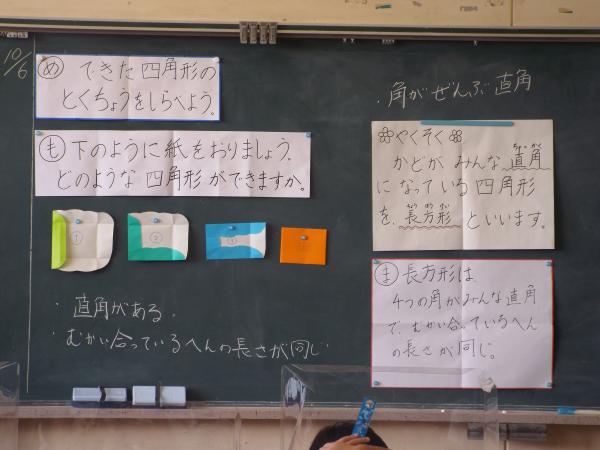 10/6
め できた四角形の
とくちょうをしらべよう。
も 下のように紙をおりましょう。
どのような四角形ができますか。
①
②
③
・直角がある。
・むかい合っているへんの長さが同じ
・角がぜんぶ直角
やくそく
かどがみんな直角
になっている四角形
を、長方形といいます。
ま 長方形は、
4つの角がみんな直角
で、むかい合っているへん
の長さが同じ。